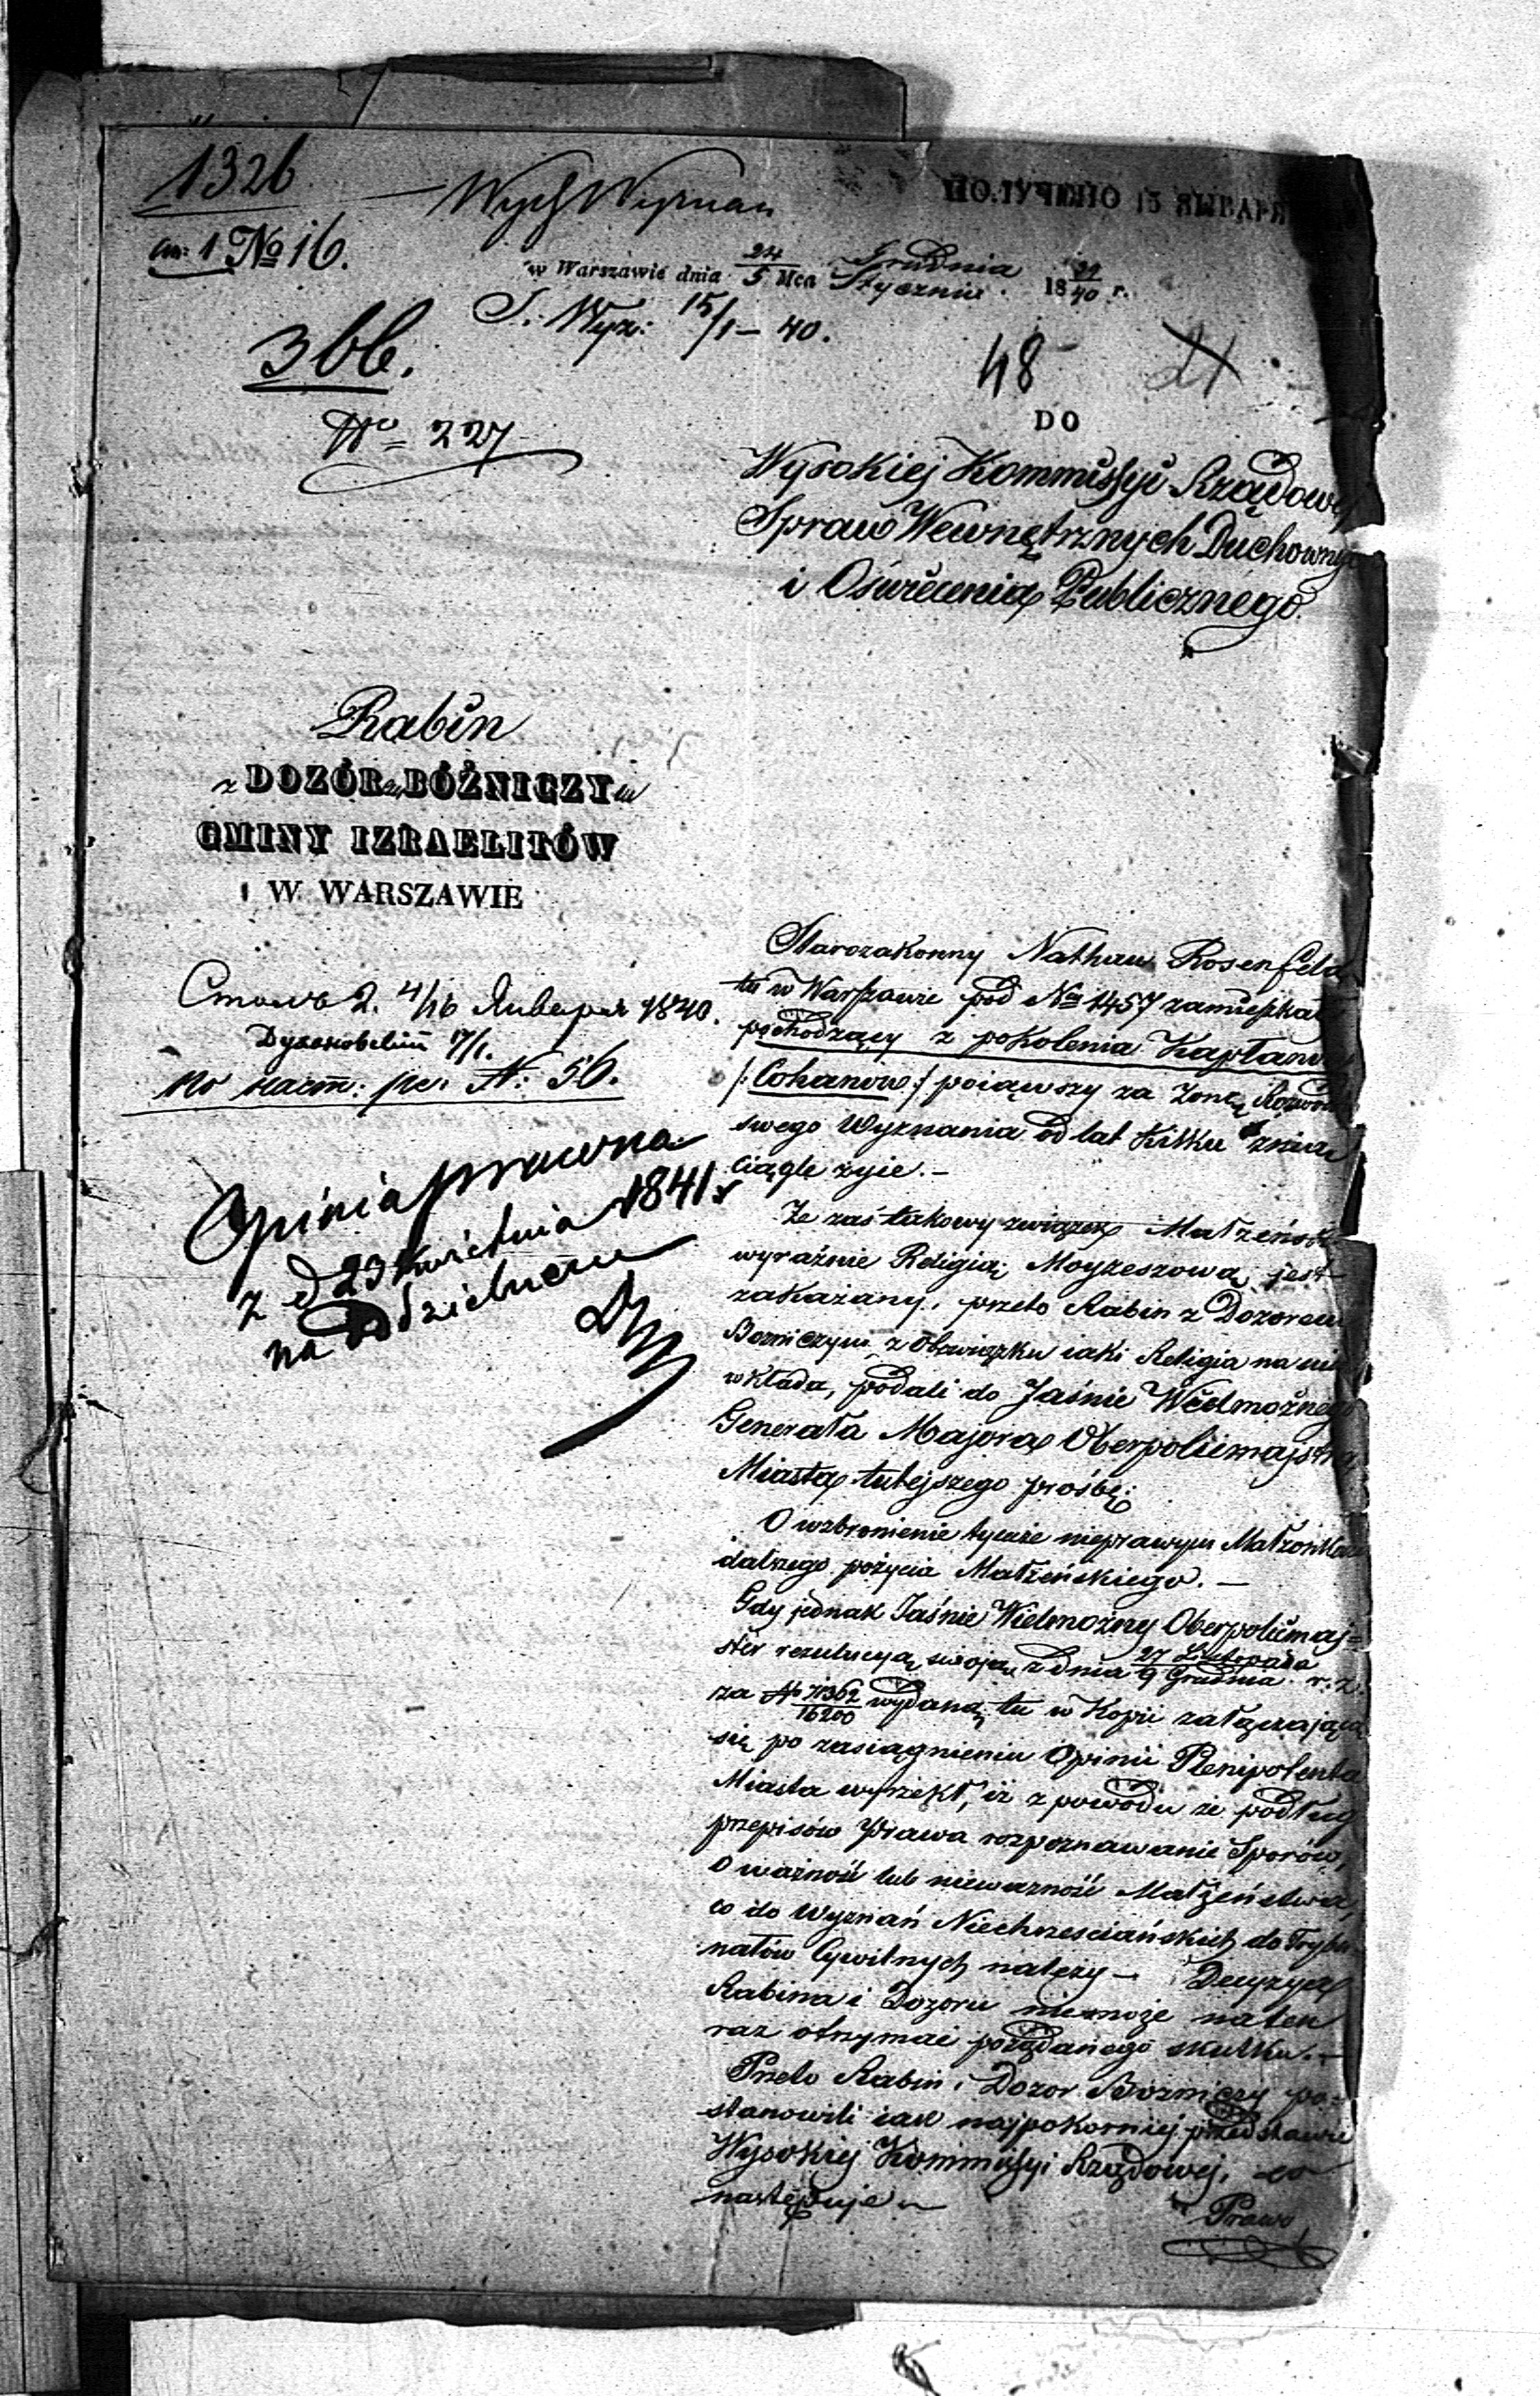 1326
Wydz Wyznań
ПОЛУЧЕНО 15 ЯНВАРЯ
1 No 16.
w Warszawie dnia 24/5 Mca Grudnia/Stycznia 1839/40 r.
S: Wyz: 15/1 – 40.
366.
48
21
No 227
DO
Wysokiej Kommissyi Rządowej
Spraw Wewnętrznych Duchownych
i Oświecenia Publicznego.
Rabin
z DOZÓRem BÓŻNICZYm
GMINY IZRAELITÓW
W WARSZAWIE
2. 4/16 Января 1840.
17/1.
по наст: рег. N: 56.
Opinia prawna
z d 23 Kwietnia 1841 r
na oddzielnem
Starozakonny Nathan Rosenfeld
tu w Warszawie pod No 1457 zamieszkały
pochodzący z pokolenia Kapłanów
/: Cohanow :/ poiąwszy za Zonę Rozwód
swego Wyznania od lat kilku z nią
ciągle żyie. –
Ze zaś takowy związek Małżeński
wyraźnie Religią Moyżeszową jest
zakazany, przeto Rabin z Dozorem
Bożniczym z obowiązku iaki Religia na nich
wkłada, podali do Jaśnie Wielmożnego
Generała Majora Oberpolicmajstra
Miasta tutejszego prośbę:
O wzbronienie tymże nieprawym Małżonkom
dalszego pożycia Małżeńskiego. –
Gdy jednak Jaśnie Wielmożny Oberpolicmaj=
ster rezulucyą swoją z dnia 27 Listopada/9 Grudnia r: z.
za No 71362/16200 wydaną tu w Kopii załączającą
się po zasiągnieniu Opinii Plenipotenta
Miasta wyrzekł, iż z powodu że podług
przepisów Prawa rozpoznawanie Sporów,
o ważność lub nieważność Małżeństwa,
co do Wyznań Niechrześciańskich do Trybu
nałów Cywilnych należy – Decyzya
Rabina i Dozoru nie może na ten
raz otrzymać pożądanego skutku. –
Przeto Rabin i Dozor Bożniczy po=
stanowili iak najpokorniej przedstawić
Wysokiej Kommissyi Rządowej, co
następuje
Prawo